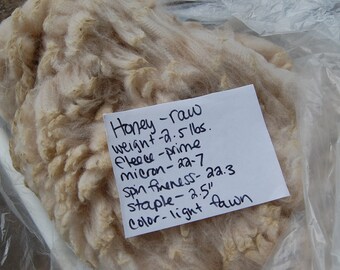 Honey - raw
weight - 2.5 lbs.
fleece - prime
micron - 22.7
spin fineness - 22.3
staple - 2.5"
color - light fawn